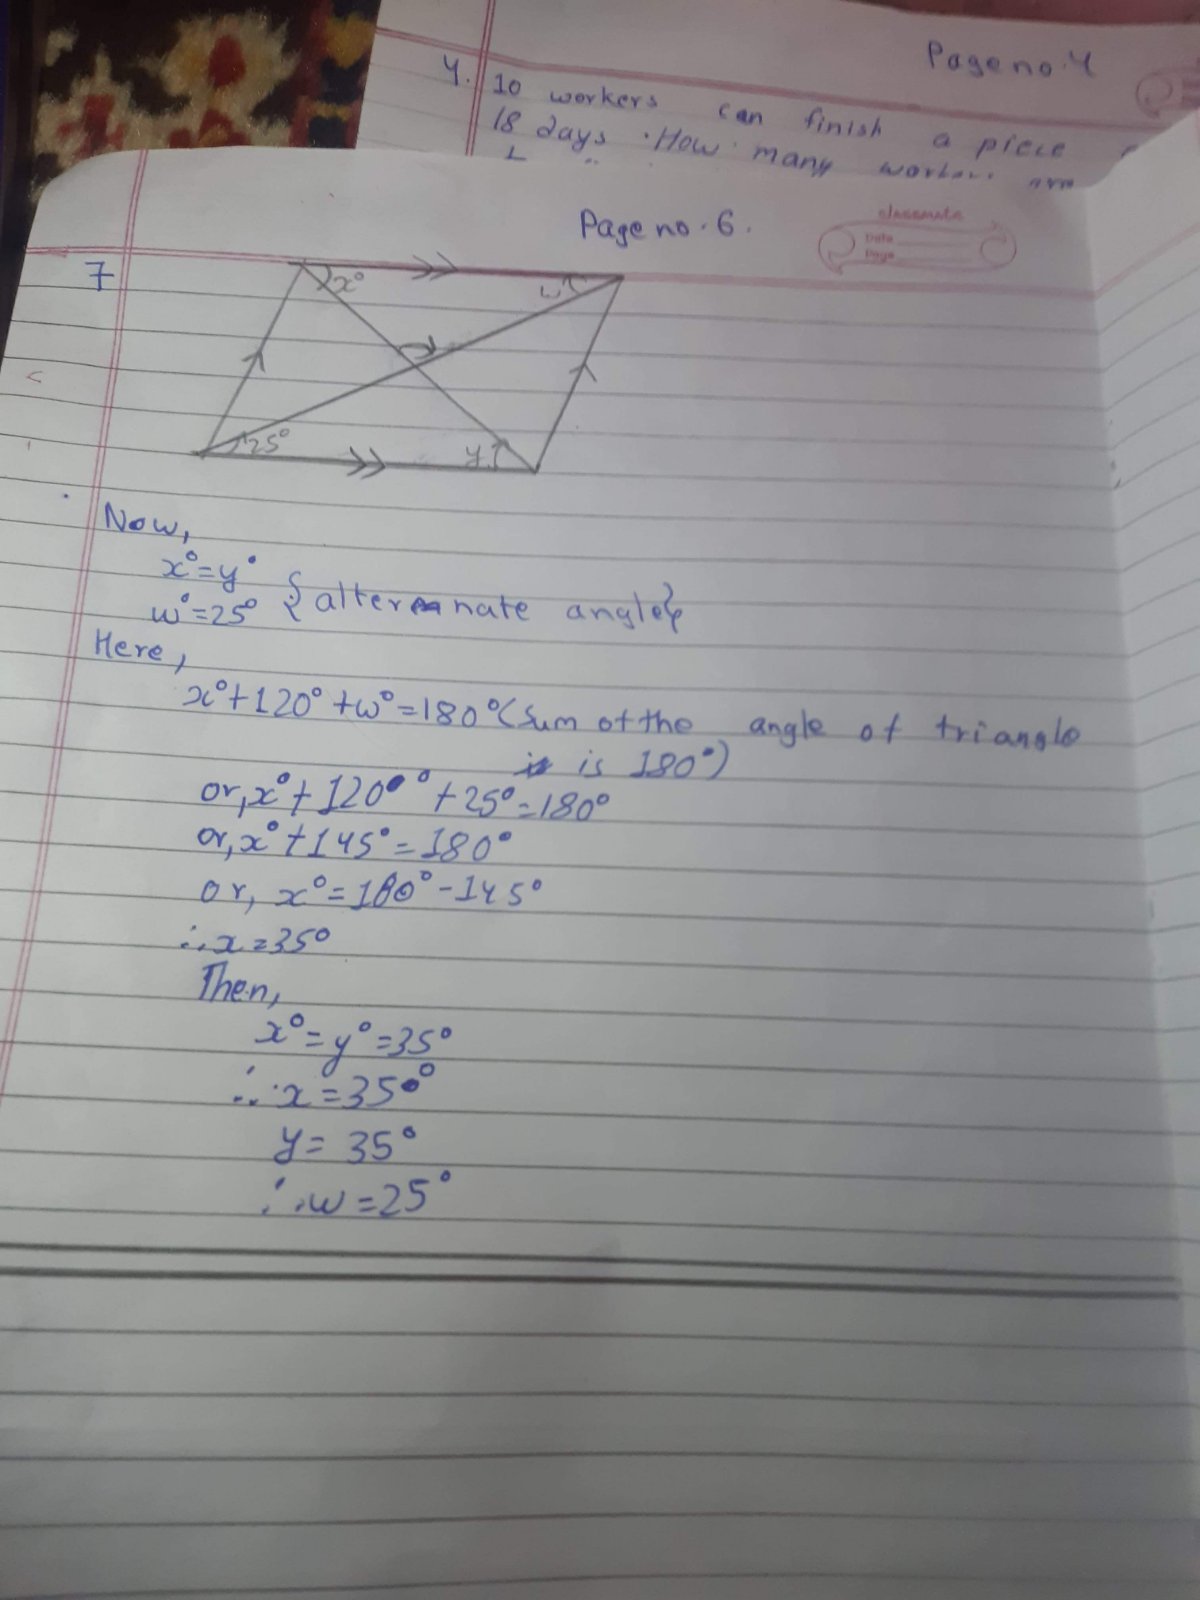 Page no. 4
4. 10 workers can finish a piece
18 days. How many
Page no. 6.
classmate
Date
Page
7
x° w
25° y
Now,
x°=y°
w°=25° {alternate angle}
Here,
x°+120°+w°=180°(Sum of the angle of triangle
is 180°)
or, x°+120°+25°=180°
or, x°+145°=180°
or, x°=180°-145°
∴x=35°
Then,
x°=y°=35°
∴x=35°
y=35°
∴w=25°